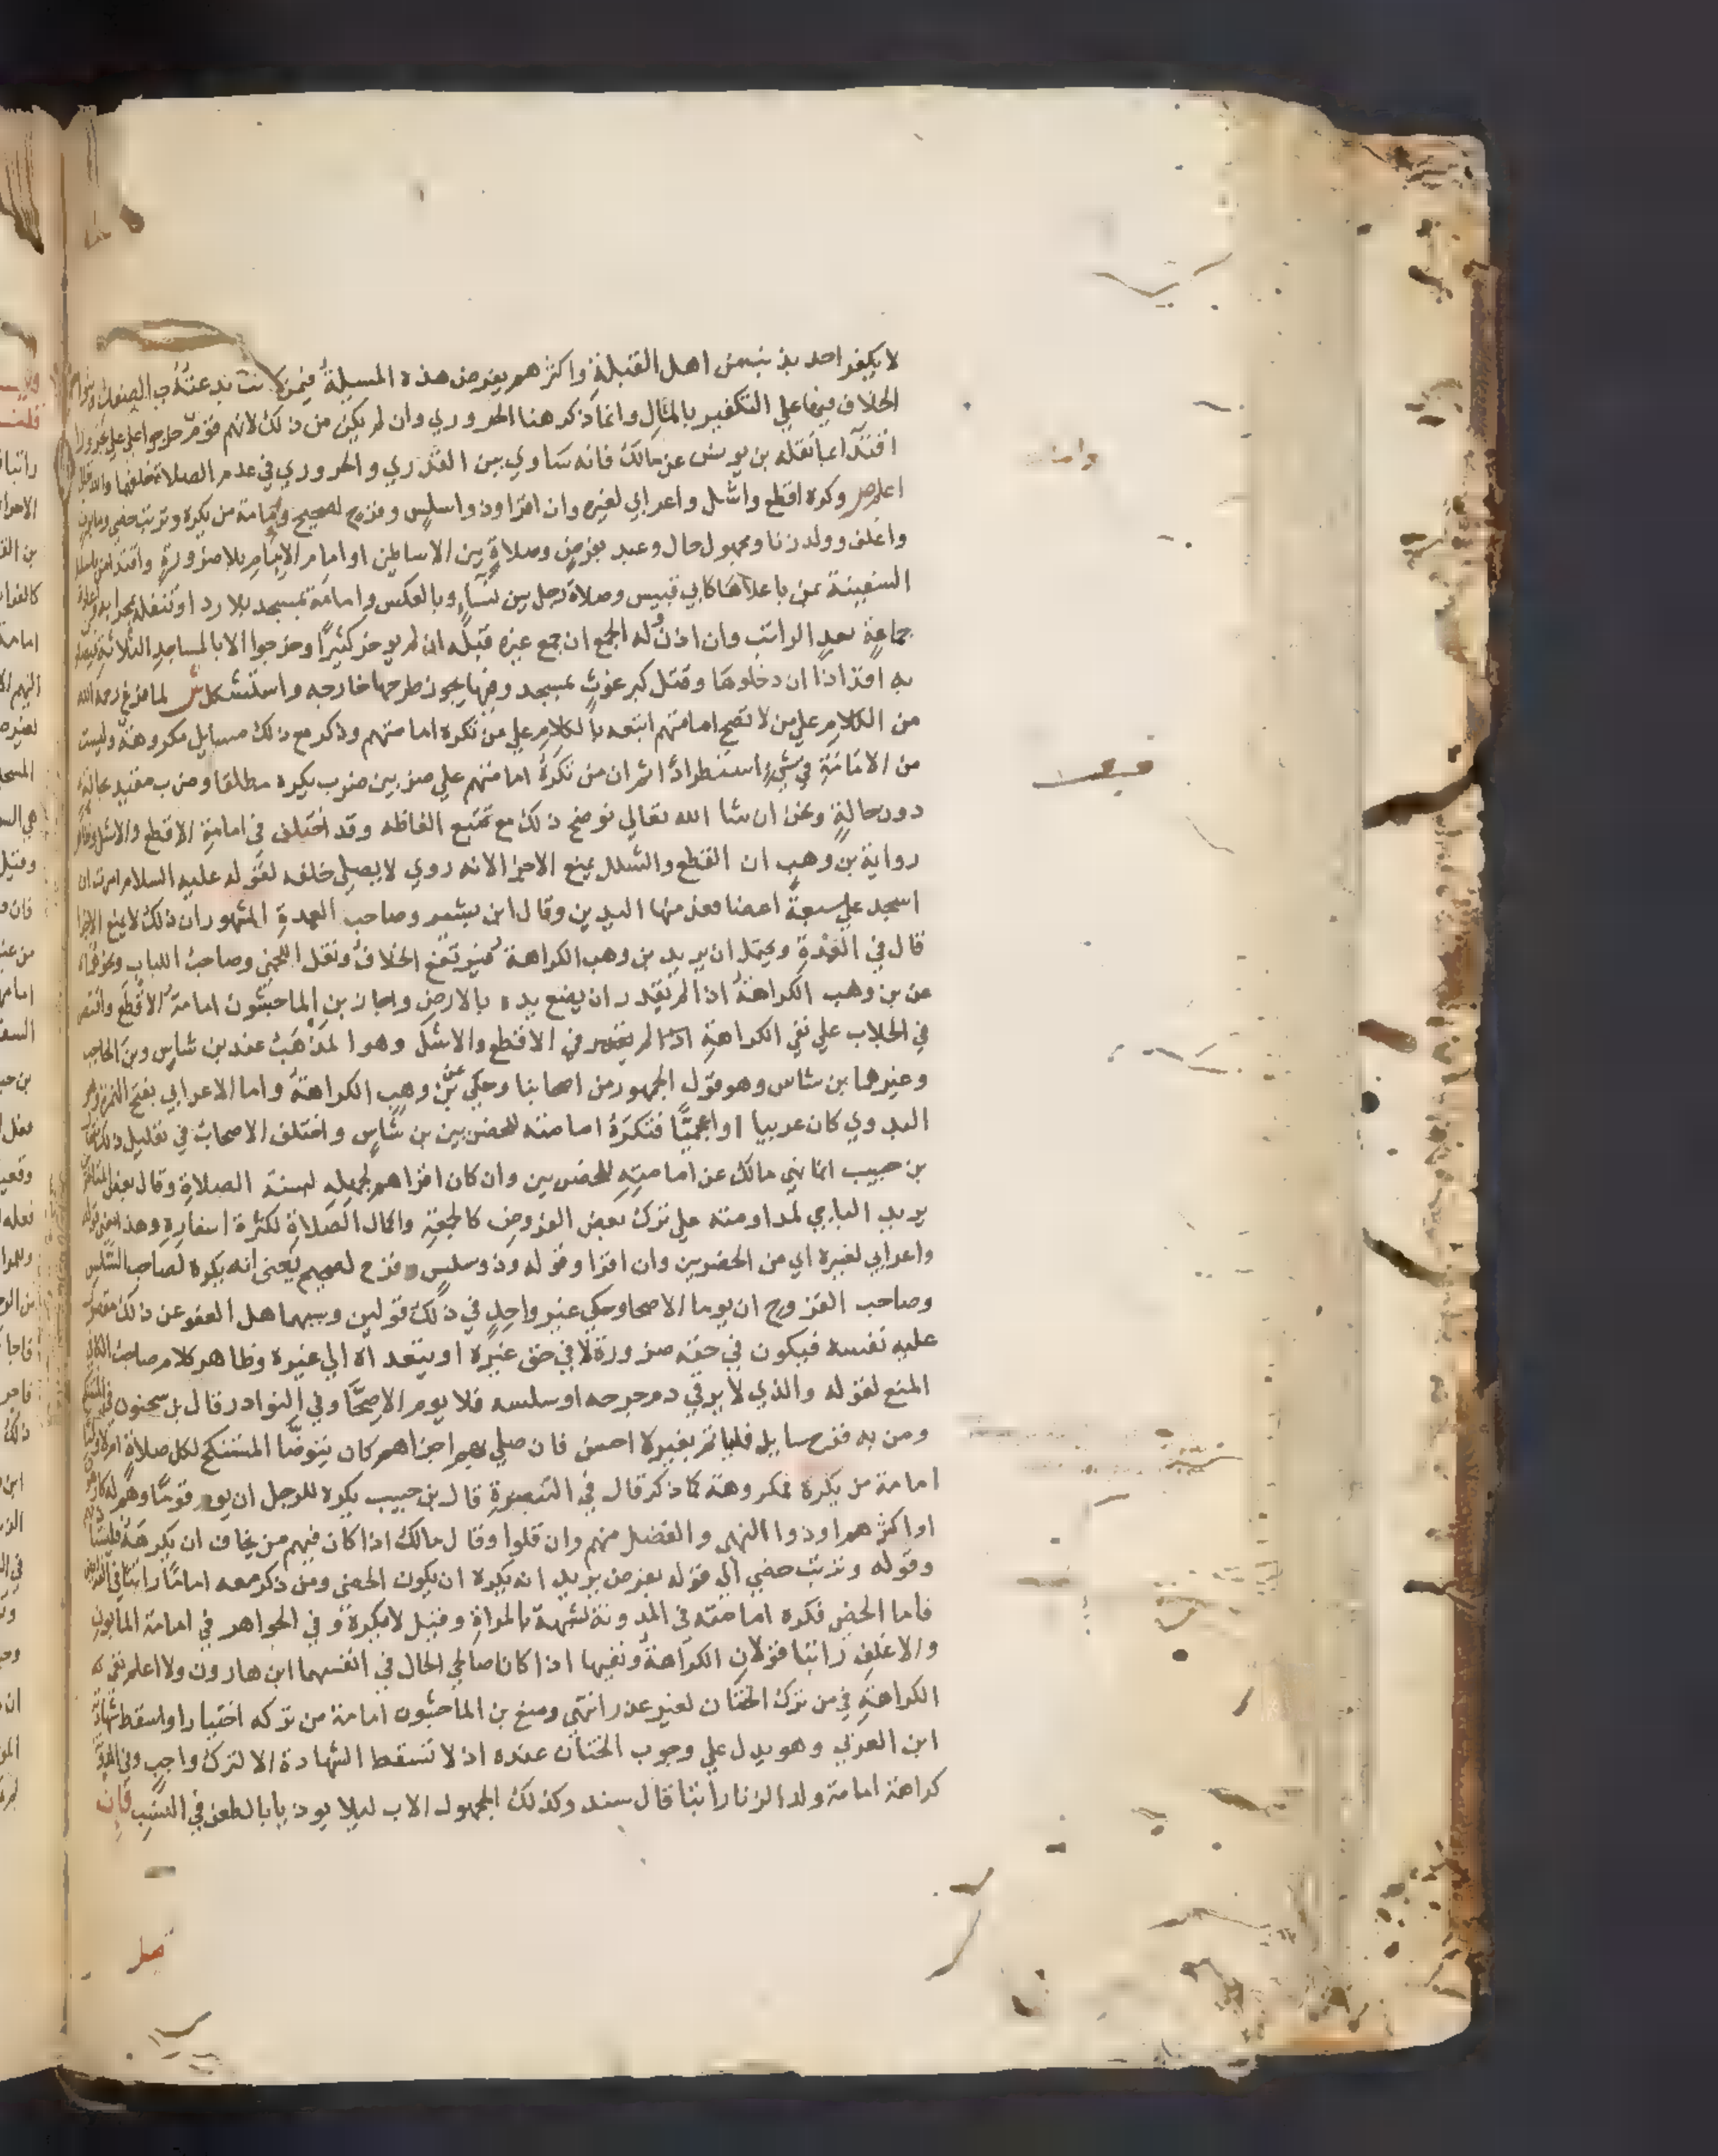 لا يكفر احد بذنب من اهل القبلة واكثرهم يفرض هذه المسيلة فيمن
الخلاف فيها علي التكفير بالمال وانما ذكر هنا الحروري وان لم يكن من ذلك لانهم قوم خرجوا علي علي
اقتدا بما نقله بن يونس عن مالك فانه ساوي بين القدري والحروري في عدم الصلاة خلفهما والله
اعلم ص وكره اقطع واشل واعرابي لغيره وان اقرا وذو سلس وقروح لصحيح وامامة من يكره وترتب خصي ومابون
واغلف وولد زنا ومجهول حال وعبد بفرض وصلاة بين الاساطين او امام الامام بلا ضرورة واقتدا من باسفل
السفينة بمن باعلاها كابي قبيس وصلاة رجل بين نسآء وبالعكس وامامة بمسجد بلا ردا وتنفله بمحرابه واعادة
جماعة بعد الراتب وان اذن وله الجمع ان جمع غيره قبله ان لم يوخر كثيرا وخرجوا الا بالمساجد الثلاثة فيصلون
به افذاذا ان دخلوها وقتل كبرغوث بمسجد وفيها يجوز طرحها خارجه واستشكل ش لما فرغ رحمه الله
من الكلام علي من لا تصح امامتهم اتبعه بالكلام علي من تكره امامتهم وذكر مع ذلك مسايل مكروهة وليست
من الامامة في شيء استطرادا ثم ان من تكره امامتهم علي ضربين ضرب يكره مطلقا وضرب مقيد بحالة
دون حالة ونحن ان شا الله تعالي نوضح ذلك مع تتبع الفاظه وقد اختلف في امامة الاقطع والاشل
رواية بن وهب ان القطع والشلل يمنع الاجزا لانه روي لا يصلي خلفه لقوله عليه السلام امرت ان
اسجد علي سبعة اعضا فعد منها اليدين وقال ابن بشير وصاحب العمدة المشهور ان ذلك لا يمنع الاجزا
قال في العمدة ويحتمل ان يريد بن وهب الكراهة فيرتفع الخلاف ونقل اللخمي وصاحب اللباب
عن بن وهب الكراهة اذا لم يقدر ان يضع يده بالارض واجاز بن الماجشون امامة الاقطع
في الجلاب علي نفي الكراهة في الاقطع والاشل وهو المذهب عند بن شاس وبن الحاجب
وغيرهما بن شاس وهو قول الجمهور من اصحابنا وحكي عن بن وهب الكراهة واما الاعرابي بفتح الهمزة وهو
البدوي كان عربيا او عجميا فتكره امامته للحضريين بن شاس واختلف الاصحاب في تعليل ذلك
بن حبيب انما نهي مالك عن امامته للحضريين وان كان اقراهم لجهله لسنة الصلاة وقال بعض
يريد الباجي لمداومته علي ترك بعض الفروض كالجمعة واكمال الصلاة لكثرة اسفاره وهذا معني قوله
واعرابي لغيره اي من الحضريين وان اقرا وقوله وذو سلس وقروح لصحيح يعني انه يكره لصاحب السلس
وصاحب القروح ان يوما الاصحا وحكي غير واحد في ذلك قولين وسببهما هل العفو عن ذلك مقصور
عليه نفسه فيكون في حقه ضرورة لا في حق غيره او يتعداه الي غيره وظاهر كلام صاحب الكافي
المنع لقوله والذي لا يرقي دم جرحه او سلسه فلا يوم الاصحا وفي النوادر قال بن سحنون
ومن به قرح سايل فليأتم بغيره احسن فان صلي بهم اجزاهم كان يتوضا المستنكح لكل صلاة ام لا
امامة من يكره مكروهة كما ذكر قال في التبصرة قال بن حبيب يكره للرجل ان يوم قوما وهم له كارهون
او اكثرهم او ذووا النهي والفضل منهم وان قلوا وقال مالك اذا كان فيهم من يخاف ان يكرهه
وقوله وترتب خصي الي قوله بفرض يريد انه يكره ان يكون الخصي ومن ذكر معه اماما راتبا في
فاما الخصي فكره امامته في المدونة لشبهه بالمراة وقيل لا يكره وفي الجواهر في امامة المابون
والاغلف راتبا قولان الكراهة ونفيها اذا كان صالحي الحال في انفسهما ابن هارون ولا اعلم نفي
الكراهة في من ترك الختان لغير عذر انتهي ومنع بن الماجشون امامة من تركه اختيارا واسقط شهادته
ابن العربي وهو يدل علي وجوب الختان عنده اذ لا تسقط الشهادة الا لترك واجب
كراهة امامة ولد الزنا راتبا قال سند وكذلك المجهول الاب ليلا يوذي بالطعن في النسب